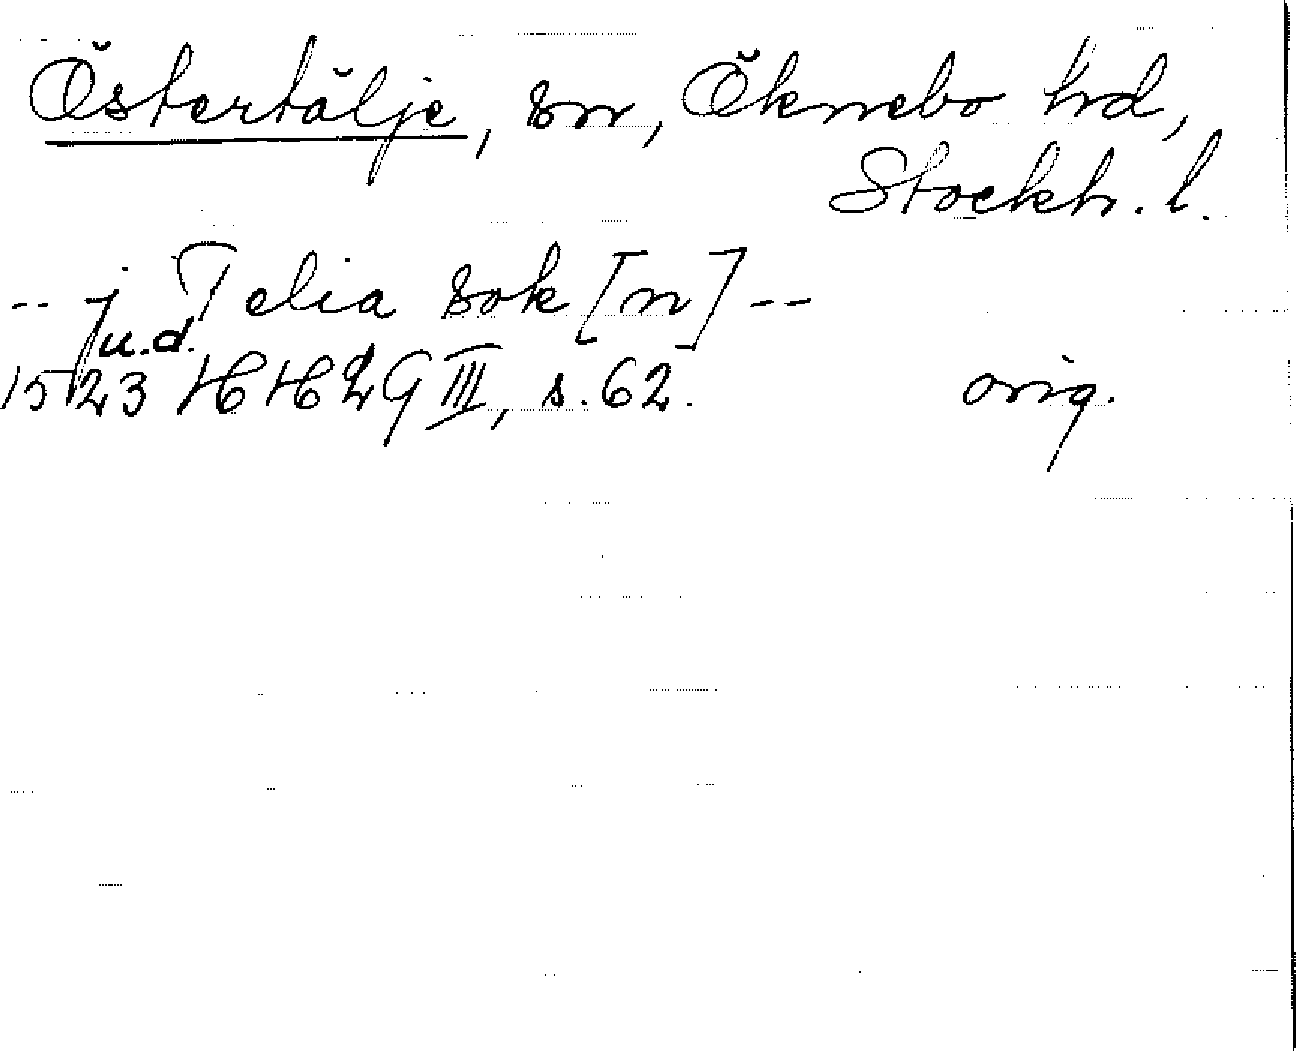 Östertälje, sn, Öknebo hd,
Stockh. l.
-- j Telia sok [n] --
u.d.
1523 HH 29 III, s. 62. orig.